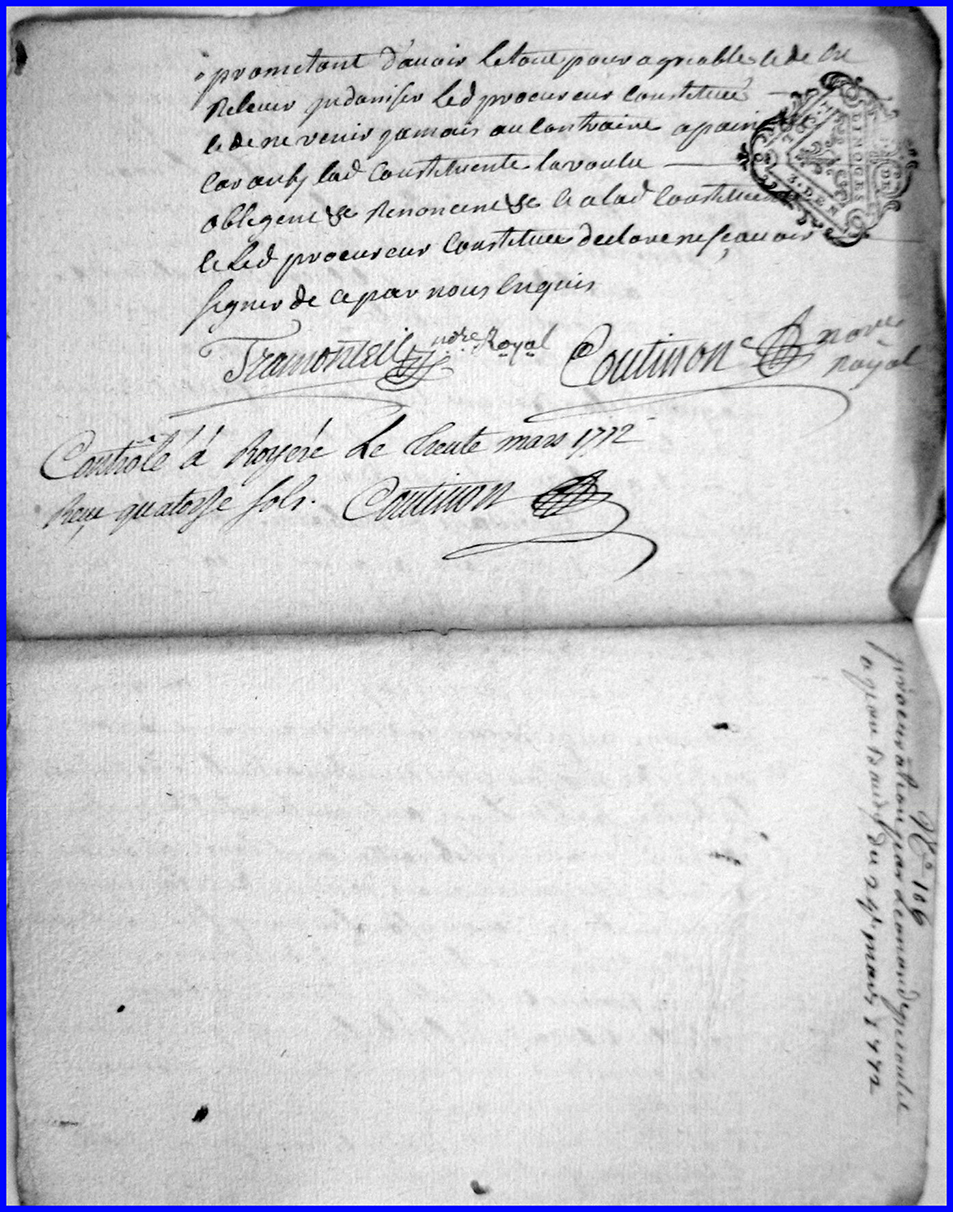 prometant d'avoir le tout pour agreable et de le
Relever indaniser led procureur constitué
et de ne venir jamais au contraire a paine
car ausy lad constituente la voulu
obligent &c Renoncent &c et a lad constituente
et led procureur constitué declare ne sçauoir
signer de ce par nous enquis
Tramonteil nore Royal
Coutinon nore
royal
Contrôlé á Royére Le trente mars 1772
Reçu quatorse sols. Coutinon
DIMOGES
G. DE
3. DEN
N° 106
procuration par Leonard
a jean du 29e mars 1772